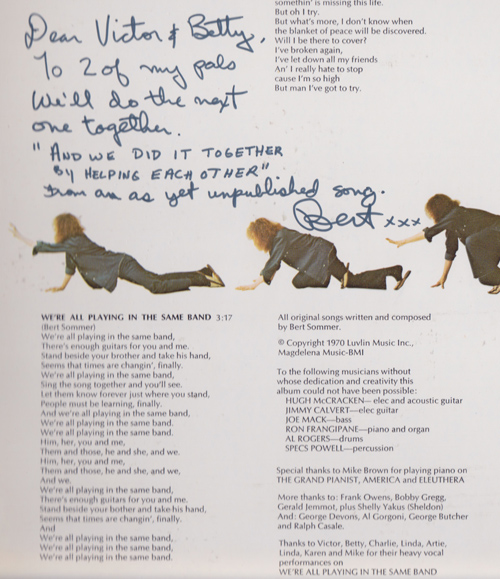 somethin' is missing this life.
But oh I try.
But what's more, I don't know when
the blanket of peace will be discovered.
Will I be there to cover?
I've broken again,
I've let down all my friends
An' I really hate to stop
cause I'm so high
But man I've got to try.
Dear Victor & Betty,
To 2 of my pals
We'll do the next
one together.
"AND WE DID IT TOGETHER
BY HELPING EACH OTHER"
from an as yet unpublished song.
Bert xxx
WE'RE ALL PLAYING IN THE SAME BAND 3:17
(Bert Sommer)
We're all playing in the same band,
There's enough guitars for you and me.
Stand beside your brother and take his hand,
Seems that times are changin', finally.
We're all playing in the same band,
Sing the song together and you'll see.
Let them know forever just where you stand,
People must be learning, finally.
And we're all playing in the same band,
We're all playing in the same band.
We're all playing in the same band.
Him, her, you and me,
Them and those, he and she, and we.
Him, her, you and me,
Them and those, he and she, and we,
And we.
We're all playing in the same band,
There's enough guitars for you and me.
Stand beside your bother and take his hand,
Seems that times are changin', finally.
And
We're all playing in the same band,
We're all playing in the same band,
We're all playing in the same band.
All original songs written and composed
by Bert Sommer.
© Copyright 1970 Luvlin Music Inc.,
Magdelena Music-BMI
To the following musicians without
whose dedication and creativity this
album could not have been possible:
HUGH McCRACKEN—elec and acoustic guitar
JIMMY CALVERT—elec guitar
JOE MACK—bass
RON FRANGIPANE—piano and organ
AL ROGERS—drums
SPECS POWELL—percussion
Special thanks to Mike Brown for playing piano on
THE GRAND PIANIST, AMERICA and ELEUTHERA
More thanks to: Frank Owens, Bobby Gregg,
Gerald Jemmot, plus Shelly Yakus (Sheldon)
And: George Devons, Al Gorgoni, George Butcher
and Ralph Casale.
Thanks to Victor, Betty, Charlie, Linda, Artie,
Linda, Karen and Mike for their heavy vocal
performances on
WE'RE ALL PLAYING IN THE SAME BAND